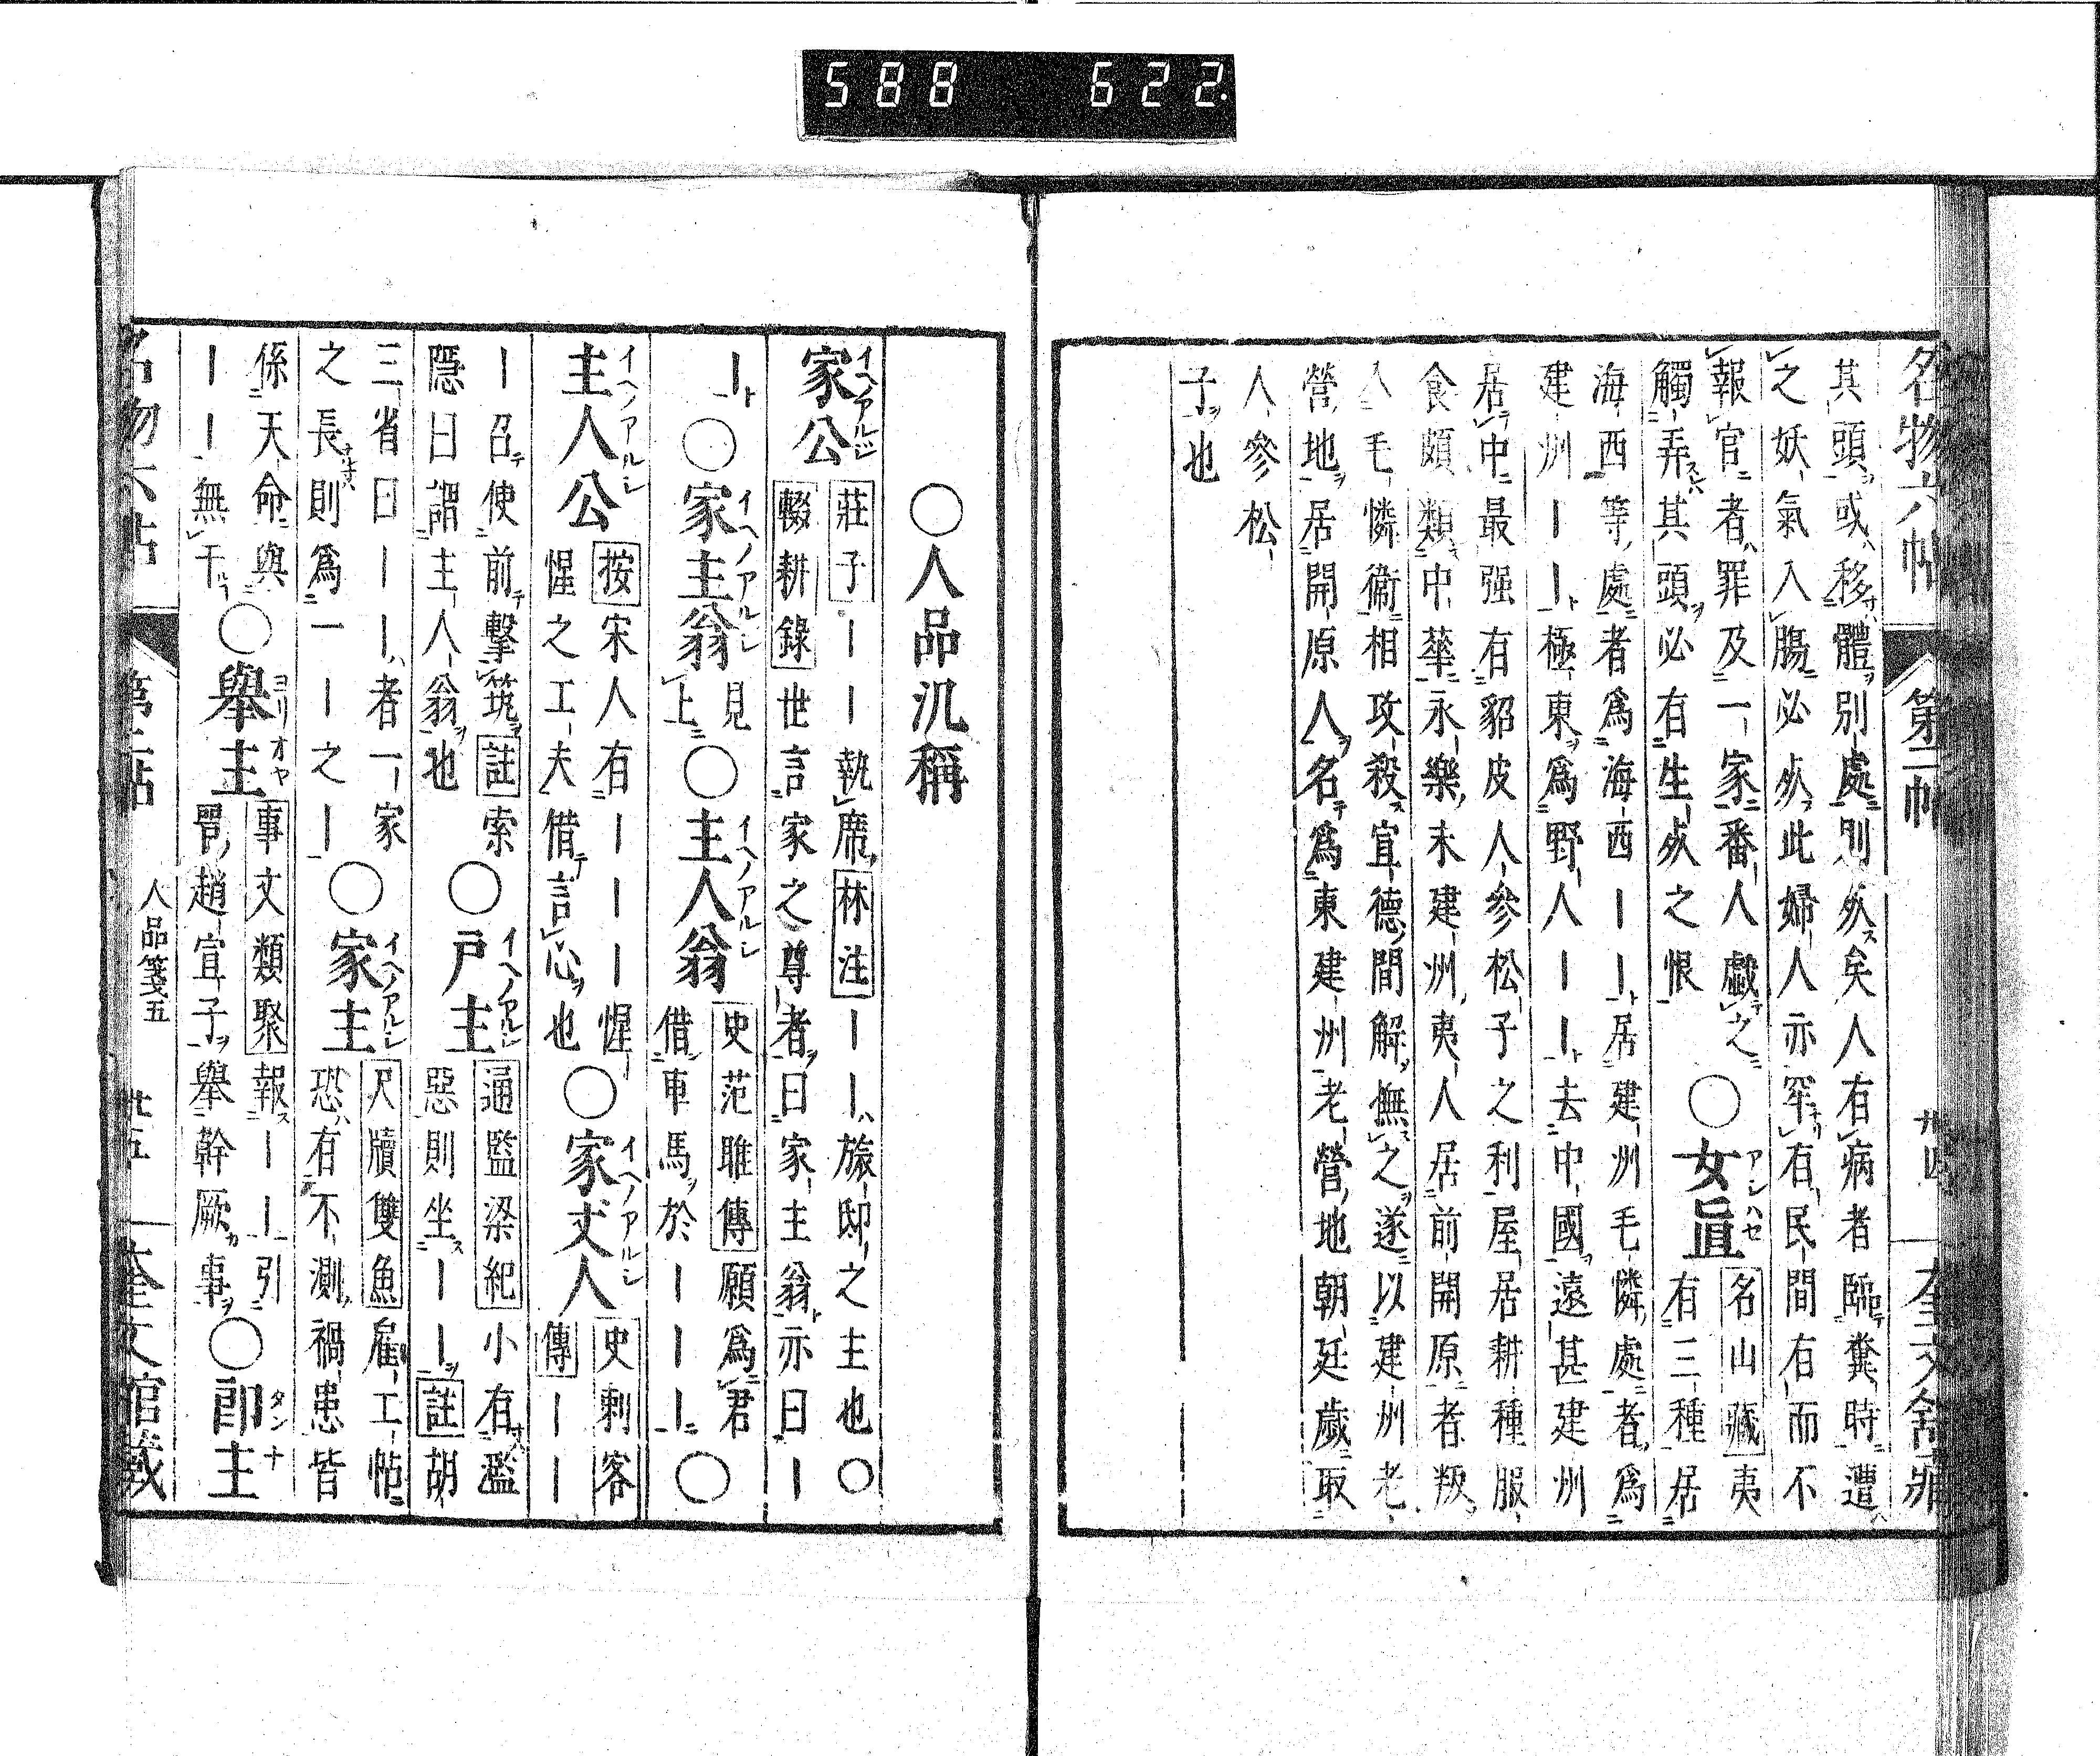 588 622.
名物六帖 第二帖 卅四 奎文舘藏
其頭或移體別處則死矣人有病者臨糞時遭
之妖氣入腸必死此婦人亦罕有民間有而不
報官者罪及一家番人戲之
觸弄其頭必有生死之恨
○女眞 アンハセ
名山藏夷
有三種居
海西等處者爲海西――居建洲毛憐處者爲
建洲――極東爲野人――去中國遠甚建州
居中最强有貂皮人參松子之利屋居耕種服
食頗類中華永樂末建洲夷人居前開原者叛
入毛憐衞相攻殺宣德間解撫之遂以建州老
營地居開原人名爲東建洲老營地朝廷歲取
人參松
子也
○人品汎稱
家公 イヘノアルジ
莊子――執席林注――旅邸之主也○
輟耕錄世言家之尊者曰家主翁亦曰―
―
○家主翁 イヘノアルシ
見
上
○主人翁 イヘノアルシ
史范雎傳願爲君
借車馬於―――○
主人公 イヘノアルシ
按宋人有―――惺
惺之工夫借言心也
○家丈人 イヘノアルシ
史刺客
傳――
―召使前擊筑註索
隱曰謂主人翁也
○戸主 イヘノアルシ
通監梁紀小有濫
惡則坐――註胡
三省曰――者一家
之長則爲一―之―
○家主 イヘノアルシ
尺牘雙魚雇工帖
恐有不測禍患皆
係天命與
――無干
○擧主 ヨリオヤ
事文類聚報――引
晋趙宣子擧幹厥事
○郎主 タンナ
名物六帖 第二帖 人品箋五 卅五 奎文舘藏